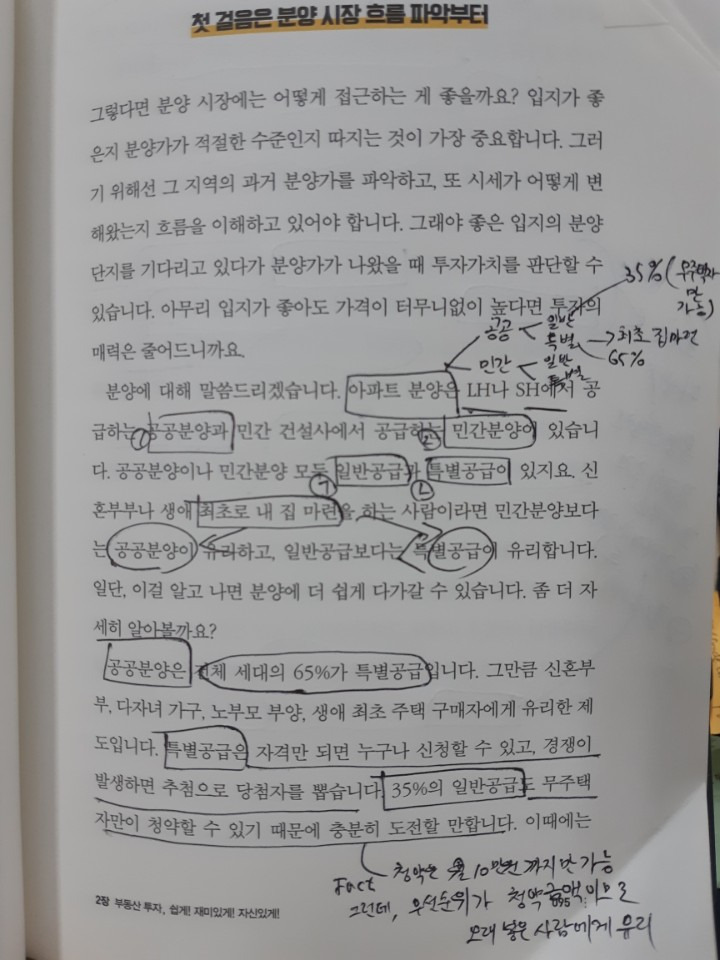 첫 걸음은 분양 시장 흐름 파악부터
그렇다면 분양 시장에는 어떻게 접근하는 게 좋을까요? 입지가 좋
은지 분양가가 적절한 수준인지 따지는 것이 가장 중요합니다. 그러
기 위해선 그 지역의 과거 분양가를 파악하고, 또 시세가 어떻게 변
해왔는지 흐름을 이해하고 있어야 합니다. 그래야 좋은 입지의 분양
단지를 기다리고 있다가 분양가가 나왔을 때 투자가치를 판단할 수
35% (무주택자
만
가능)
있습니다. 아무리 입지가 좋아도 가격이 터무니없이 높다면 투자의
공공 < 일반
특별 → 최초 집마련
65%
매력은 줄어드니까요.
민간 < 일반
특별
분양에 대해 말씀드리겠습니다. 아파트 분양은 LH나 SH에서 공
급하는 공공분양과 민간 건설사에서 공급하는 민간분양이 있습니
① ②
다. 공공분양이나 민간분양 모두 일반공급과 특별공급이 있지요. 신
㉠ ㉡
혼부부나 생애 최초로 내 집 마련을 하는 사람이라면 민간분양보다
는 공공분양이 유리하고, 일반공급보다는 특별공급이 유리합니다.
일단, 이걸 알고 나면 분양에 더 쉽게 다가갈 수 있습니다. 좀 더 자
세히 알아볼까요?
공공분양은 전체 세대의 65%가 특별공급입니다. 그만큼 신혼부
부, 다자녀 가구, 노부모 부양, 생애 최초 주택 구매자에게 유리한 제
도입니다. 특별공급은 자격만 되면 누구나 신청할 수 있고, 경쟁이
발생하면 추첨으로 당첨자를 뽑습니다. 35%의 일반공급도 무주택
자만이 청약할 수 있기 때문에 충분히 도전할 만합니다. 이때에는
Fact 청약은 월 10만원 까지만 가능
그런데, 우선순위가 청약금액이므로
오래 넣은 사람에게 유리
2장 부동산 투자, 쉽게! 재미있게! 자신있게!